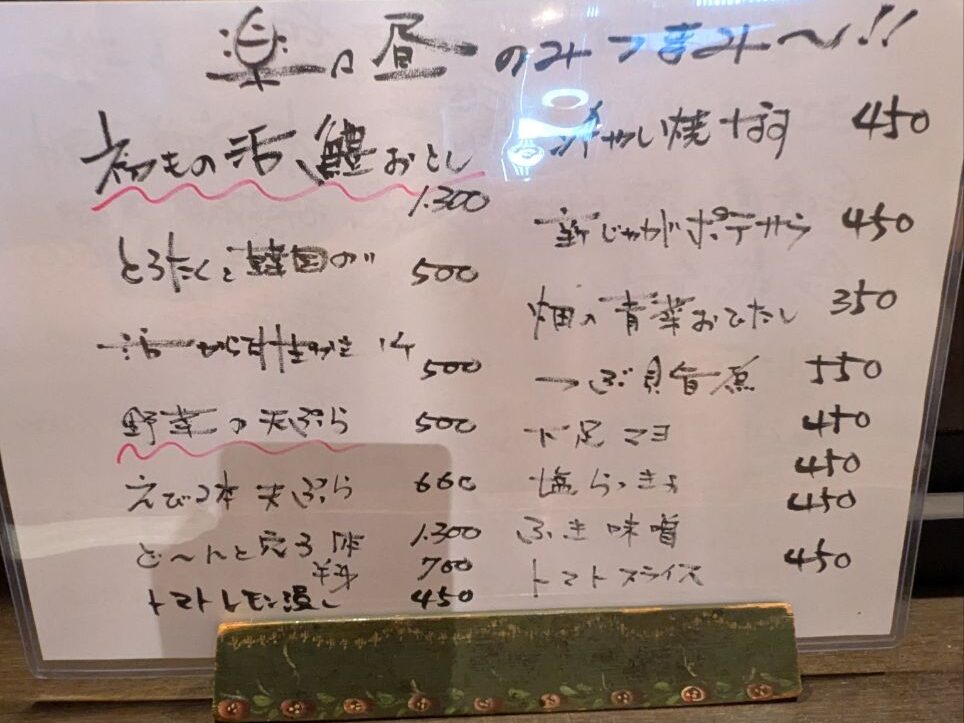 楽 昼のみつまみ〜!!
初もの活鱧おとし
1.300
とろたくと韓国のり 500
活
500
野菜の天ぷら 500
えび2本天ぷら 660
ど〜んと穴子1本 1.300
半身 700
トマトレモン漬し 450
冷やし焼なす 450
新じゃがポテサラ 450
畑の青菜おひたし 350
つぶ貝旨煮 550
下足マヨ 450
塩らっきょ 450
ふき味噌 450
トマトスライス 450